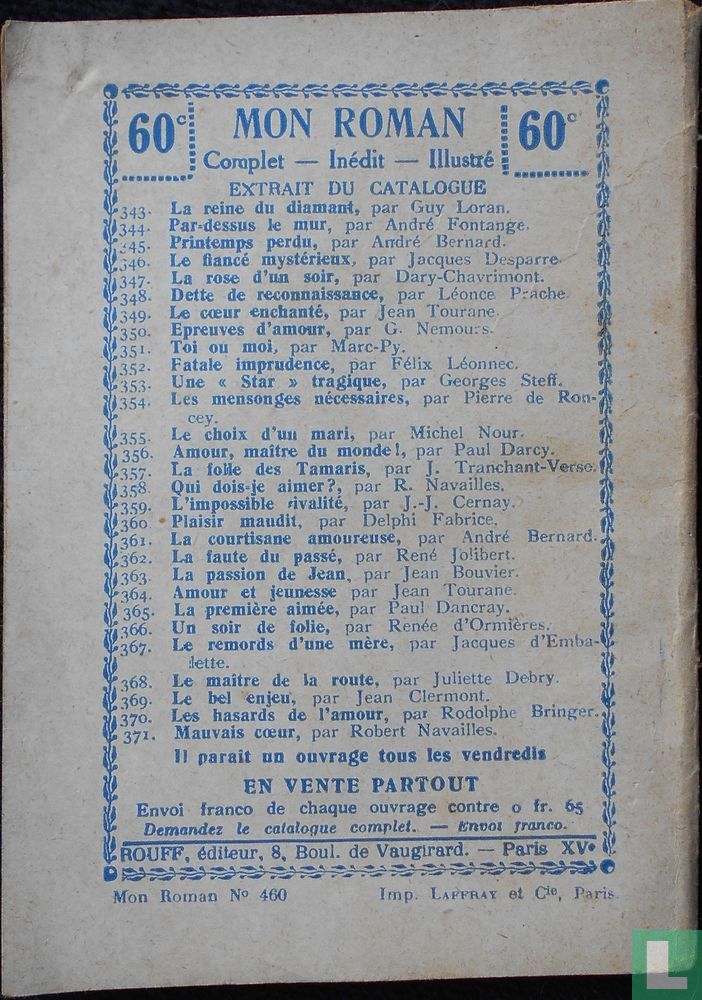 60c MON ROMAN 60c
Complet — Inédit — Illustré
EXTRAIT DU CATALOGUE
343. La reine du diamant, par Guy Loran.
344. Par-dessus le mur, par André Fontange.
345. Printemps perdu, par André Bernard.
346. Le fiancé mystérieux, par Jacques Desparre.
347. La rose d'un soir, par Dary-Chavrimont.
348. Dette de reconnaissance, par Léonce Prache.
349. Le cœur enchanté, par Jean Tourane.
350. Epreuves d'amour, par G. Nemours.
351. Toi ou moi, par Marc-Py.
352. Fatale imprudence, par Félix Léonnec.
353. Une « Star » tragique, par Georges Steff.
354. Les mensonges nécessaires, par Pierre de Ron-
cey.
355. Le choix d'un mari, par Michel Nour.
356. Amour, maître du monde!, par Paul Darcy.
357. La folie des Tamaris, par J. Tranchant-Verse.
358. Qui dois-je aimer?, par R. Navailles.
359. L'impossible rivalité, par J.-J. Cernay.
360. Plaisir maudit, par Delphi Fabrice.
361. La courtisane amoureuse, par André Bernard.
362. La faute du passé, par René Jolibert.
363. La passion de Jean, par Jean Bouvier.
364. Amour et jeunesse par Jean Tourane.
365. La première aimée, par Paul Dancray.
366. Un soir de folie, par Renée d'Ormières.
367. Le remords d'une mère, par Jacques d'Emba-
lette.
368. Le maître de la route, par Juliette Debry.
369. Le bel enjeu, par Jean Clermont.
370. Les hasards de l'amour, par Rodolphe Bringer.
371. Mauvais cœur, par Robert Navailles.
Il paraît un ouvrage tous les vendredis
EN VENTE PARTOUT
Envoi franco de chaque ouvrage contre 0 fr. 65
Demandez le catalogue complet. — Envoi franco.
ROUFF, éditeur, 8, Boul. de Vaugirard. — Paris XVe
Mon Roman No 460 Imp. LAFFRAY et Cie, Paris
L